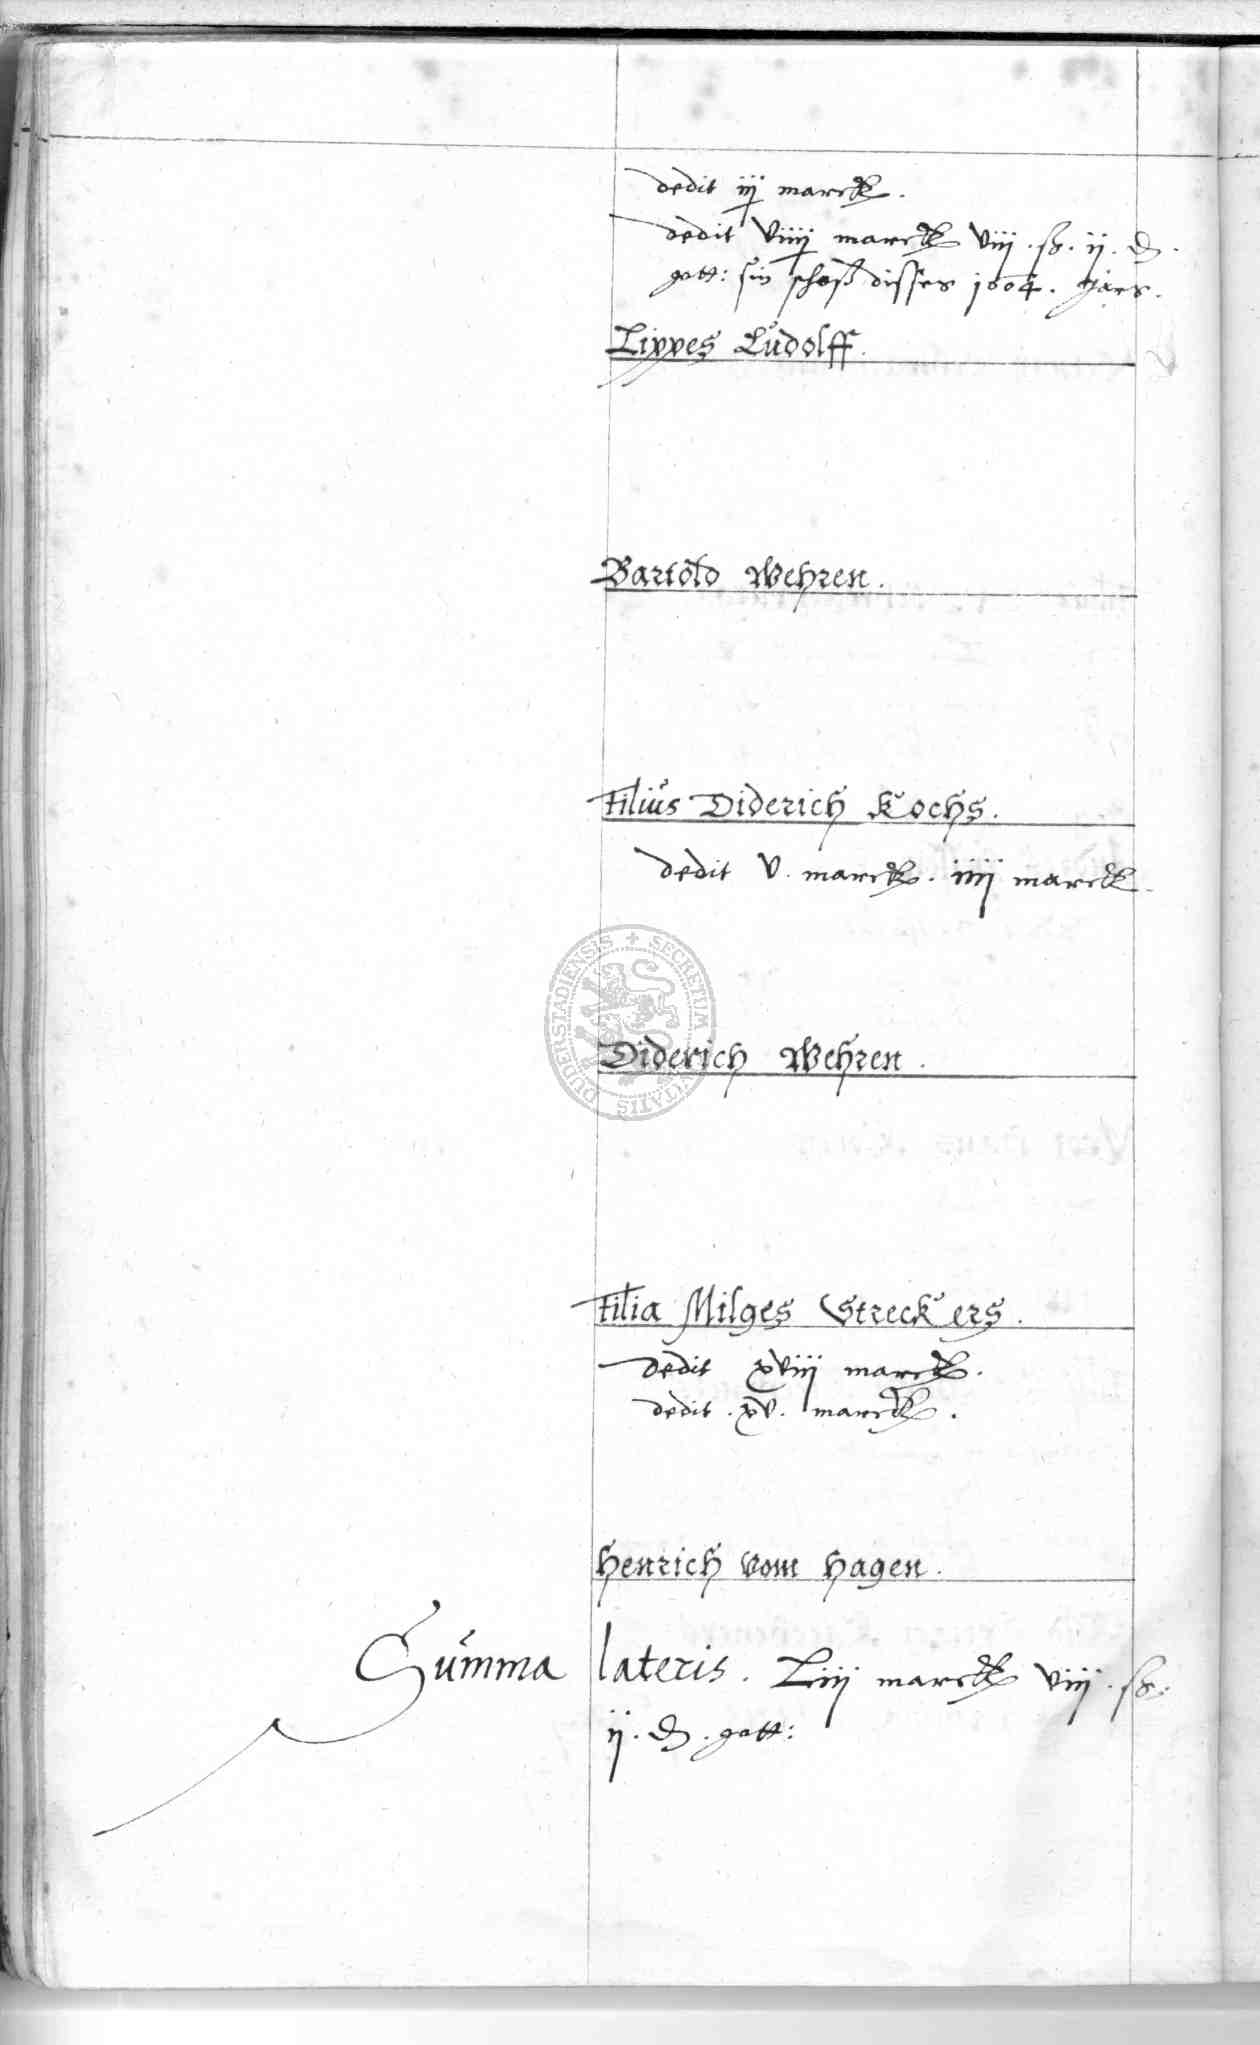 dedit iij marck.
dedit viiij marck viij . sz. ij . d.
gott: sin schoß disses 1604. Jars.
Lippes Ludolff.
Bartold Wehren.
Filius Diderich Kochs.
dedit v. marck. iiij marck.
DUDERSTADIENSIS + SECRETUM CIVITATIS
Diderich Wehren.
Filia Milges Streckers.
dedit xviij marck.
dedit . xv. marck.
Henrich vom Hagen.
Summa lateris. Liij marck viij . sz.
ij . d . gott: